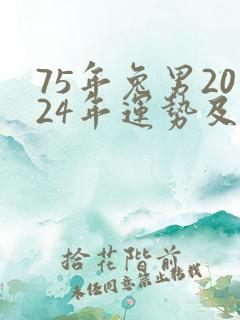 75年兔男20
24年運勢及
拾花階前
未经同意禁止转载